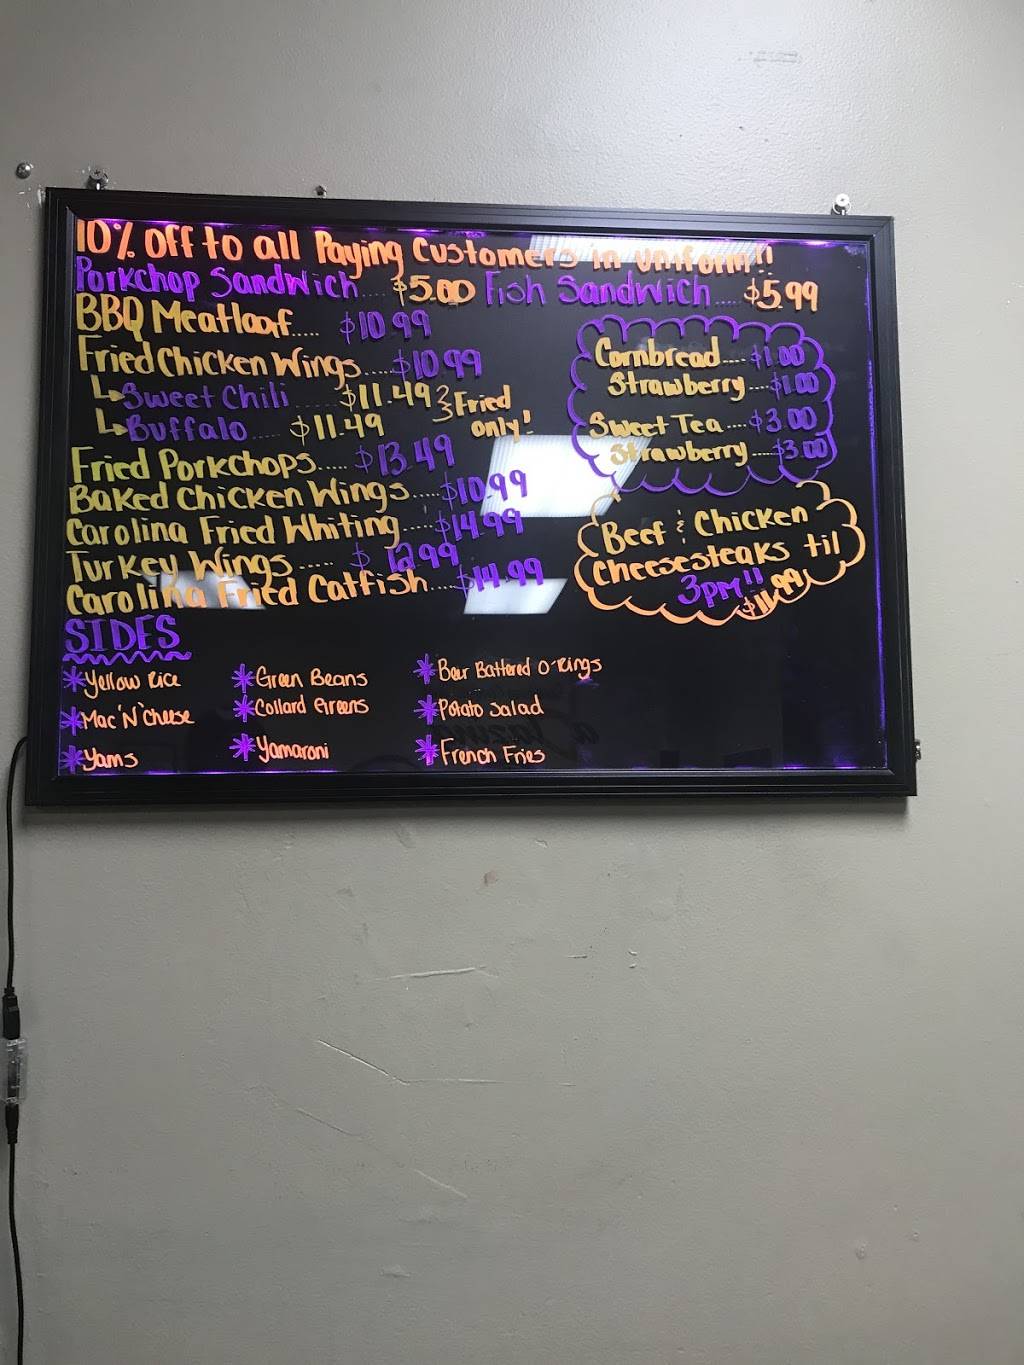 10% off to all Paying Customers in uniform!!
Porkchop Sandwich.... $5.00 Fish Sandwich.... $5.99
BBQ Meatloaf..... $10.99
Fried Chicken Wings.... $10.99
Sweet Chili .... $11.49
Buffalo .... $11.49
Fried only!
Fried Porkchops..... $13.49
Baked Chicken Wings.... $10.99
Carolina Fried Whiting.... $14.99
Turkey Wings..... $12.99
Carolina Fried Catfish.... $14.99
Cornbread.... $1.00
Strawberry.... $1.00
Sweet Tea.... $3.00
Strawberry.... $3.00
Beef & Chicken
Cheesesteaks til
3pm!! $11.99
SIDES
*Yellow Rice
*Mac 'N' Cheese
*Yams
*Green Beans
*Collard Greens
*Yamaroni
*Beer Battered O-Rings
*Potato Salad
*French Fries